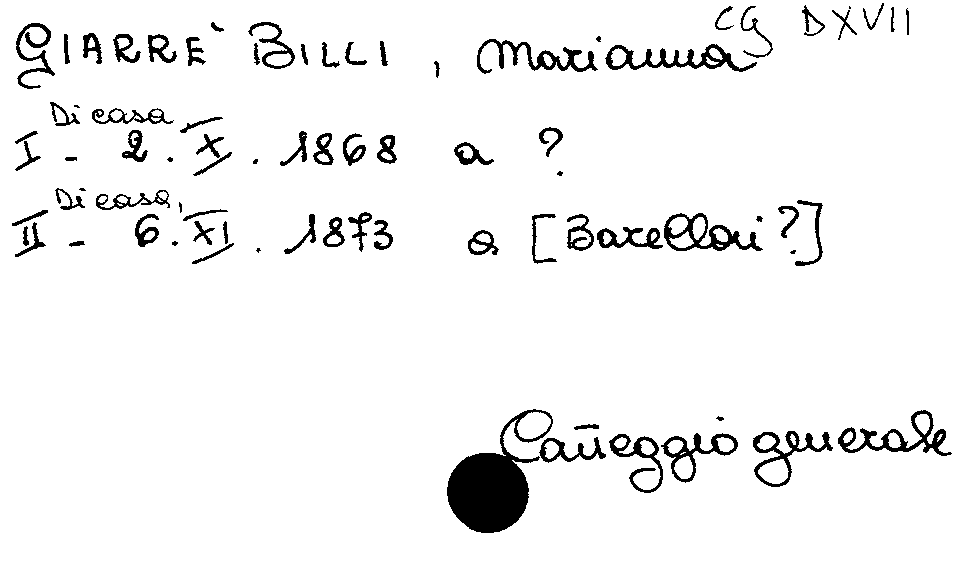 CG DXVII
GIARRE' BILLI, Marianna
I - Di casa, 2.X.1868 a ?
II - Di casa, 6.XI.1873 a [Barellai?]
Carteggio generale